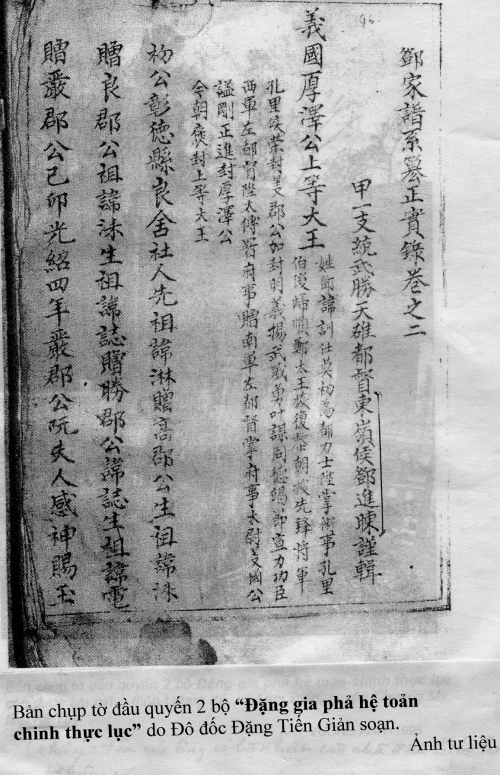 96
鄧家譜系纂正實錄卷之二
甲一支統武勝天雄都督東嶺侯鄧進暕謹輯
義國厚澤公上等大王
姓鄧諱訓仕莫初為都力士陞掌衛事孔里
伯後歸順鄭太王恢復黎朝
先鋒將軍
孔里侯榮封
郡公加封明義揚武威勇叶謀同德
節宣力功臣
西軍左都督陞太傅署府事贈南軍左都督掌府事太尉義國公
謚剛正進封厚澤公
今朝褒封上等大王
初公彰德縣良舍社人先祖諱淋贈高郡公生祖諱洙
贈良郡公祖諱洙生祖諱誌贈勝郡公諱誌生祖諱
贈嚴郡公己卯光紹四年嚴郡公阮夫人感神賜玉
Bản chụp tờ đầu quyển 2 bộ “Đặng gia phả hệ toản
chinh thực lục” do Đô đốc Đặng Tiến Giản soạn.
Ảnh tư liệu